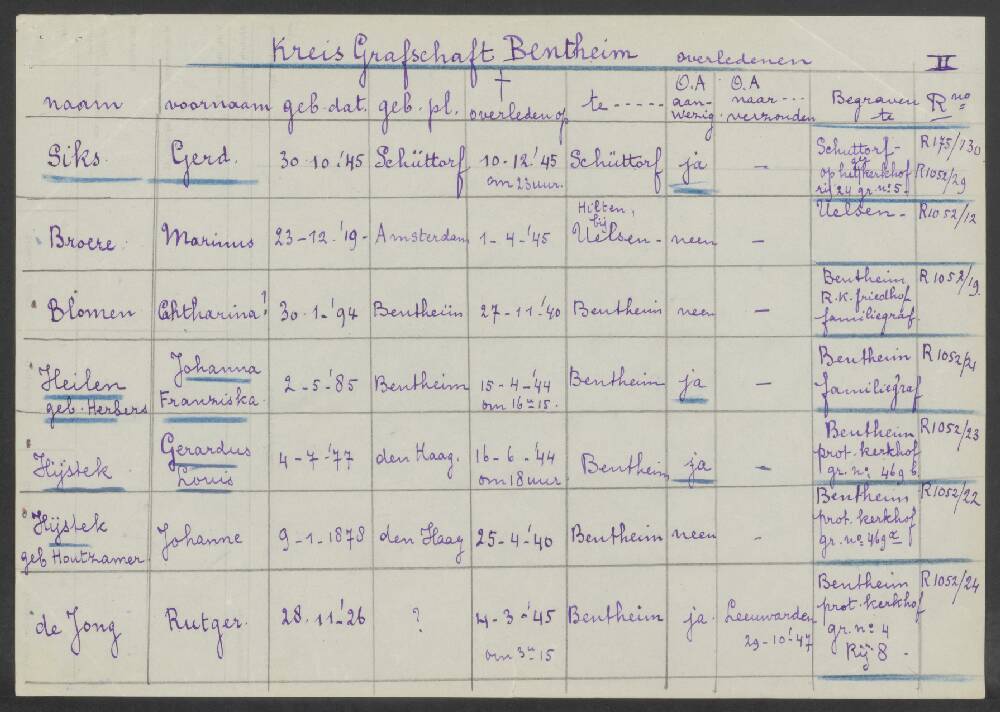 Kreis Grafschaft Bentheim overledenen II
naam voornaam geb. dat. geb. pl. † overleden op te ----- O.A aanwezig. O.A naar --- verzonden Begraven te R no
Siks Gerd. 30-10-'45 Schüttorf 10-12-'45 om 23 uur. Schüttorf ja — Schuttorf- op het kerkhof rij 24 gr. no 5. R175/130 R1052/29
Broere Marinus 23-12-'19- Amsterdam 1-4-'45 Hilten, bij Uelsen- neen — Uelsen- R1052/12
Blomen Chatharina! 30-1-'94 Bentheim 27-11-'40 Bentheim neen — Bentheim R.K. friedhof familiegraf. R1052/19.
Heilen geb. Herbers Johanna Franziska 2-5-'85 Bentheim 15-4-'44 om 16 u 15. Bentheim ja — Bentheim familiegraf R1052/21
Hijstek Gerardus Louis 4-7-'77 den Haag. 16-6-'44 om 18 uur Bentheim ja — Bentheim prot. kerkhof gr. no. 469 b. R1052/23
Hijstek geb Houtzamer Johanne 9-1-1878 den Haag 25-4-'40 Bentheim neen - Bentheim prot. kerkhof gr. no 469 a R1052/22
de Jong Rutger. 28-11-'26 ? 4-3-'45 om 3 u 15 Bentheim ja. Leeuwarden 29-10-'47 Bentheim prot. kerkhof gr. no 4 Rij 8 - R1052/24